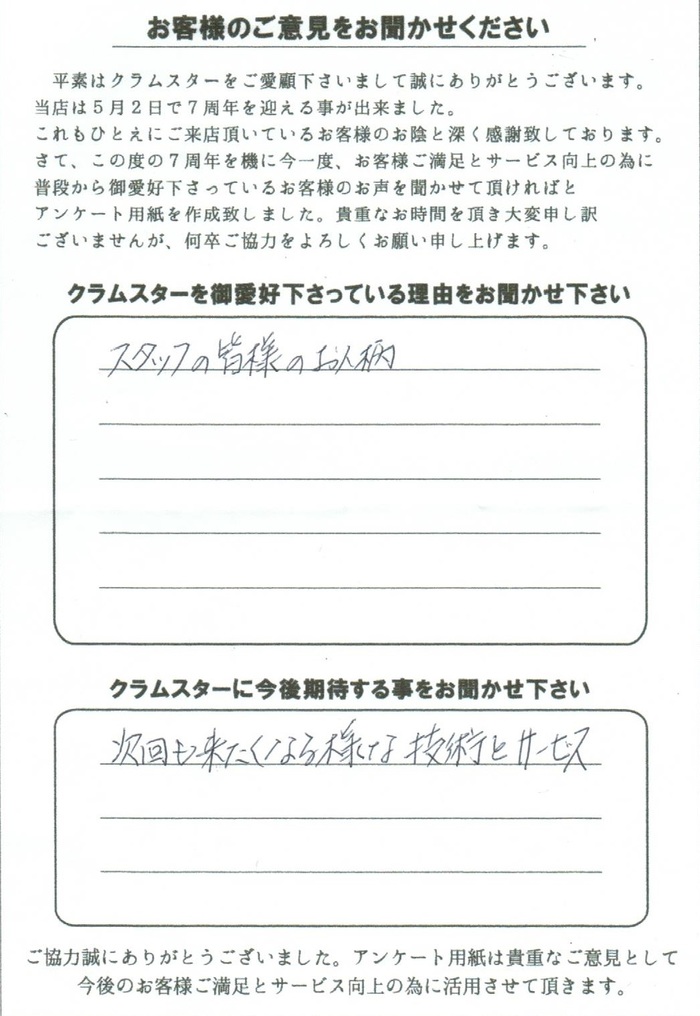 お客様のご意見をお聞かせください
平素はクラムスターをご愛顧下さいまして誠にありがとうございます。
当店は5月2日で7周年を迎える事が出来ました。
これもひとえにご来店頂いているお客様のお陰と深く感謝致しております。
さて、この度の7周年を機に今一度、お客様ご満足とサービス向上の為に
普段から御愛好下さっているお客様のお声を聞かせて頂ければと
アンケート用紙を作成致しました。貴重なお時間を頂き大変申し訳
ございませんが、何卒ご協力をよろしくお願い申し上げます。
クラムスターを御愛好下さっている理由をお聞かせ下さい
スタッフの皆様のお人柄
クラムスターに今後期待する事をお聞かせ下さい
次回も来たくなる様な技術とサービス
ご協力誠にありがとうございました。アンケート用紙は貴重なご意見として
今後のお客様ご満足とサービス向上の為に活用させて頂きます。